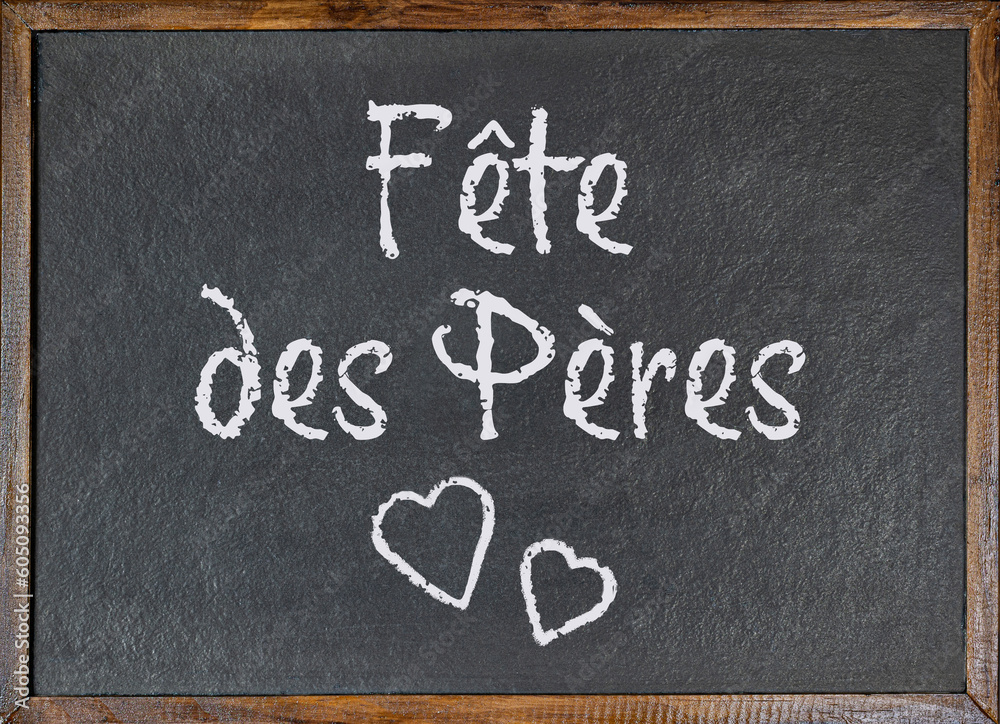 Fête
des Pères
Adobe Stock | #605093356